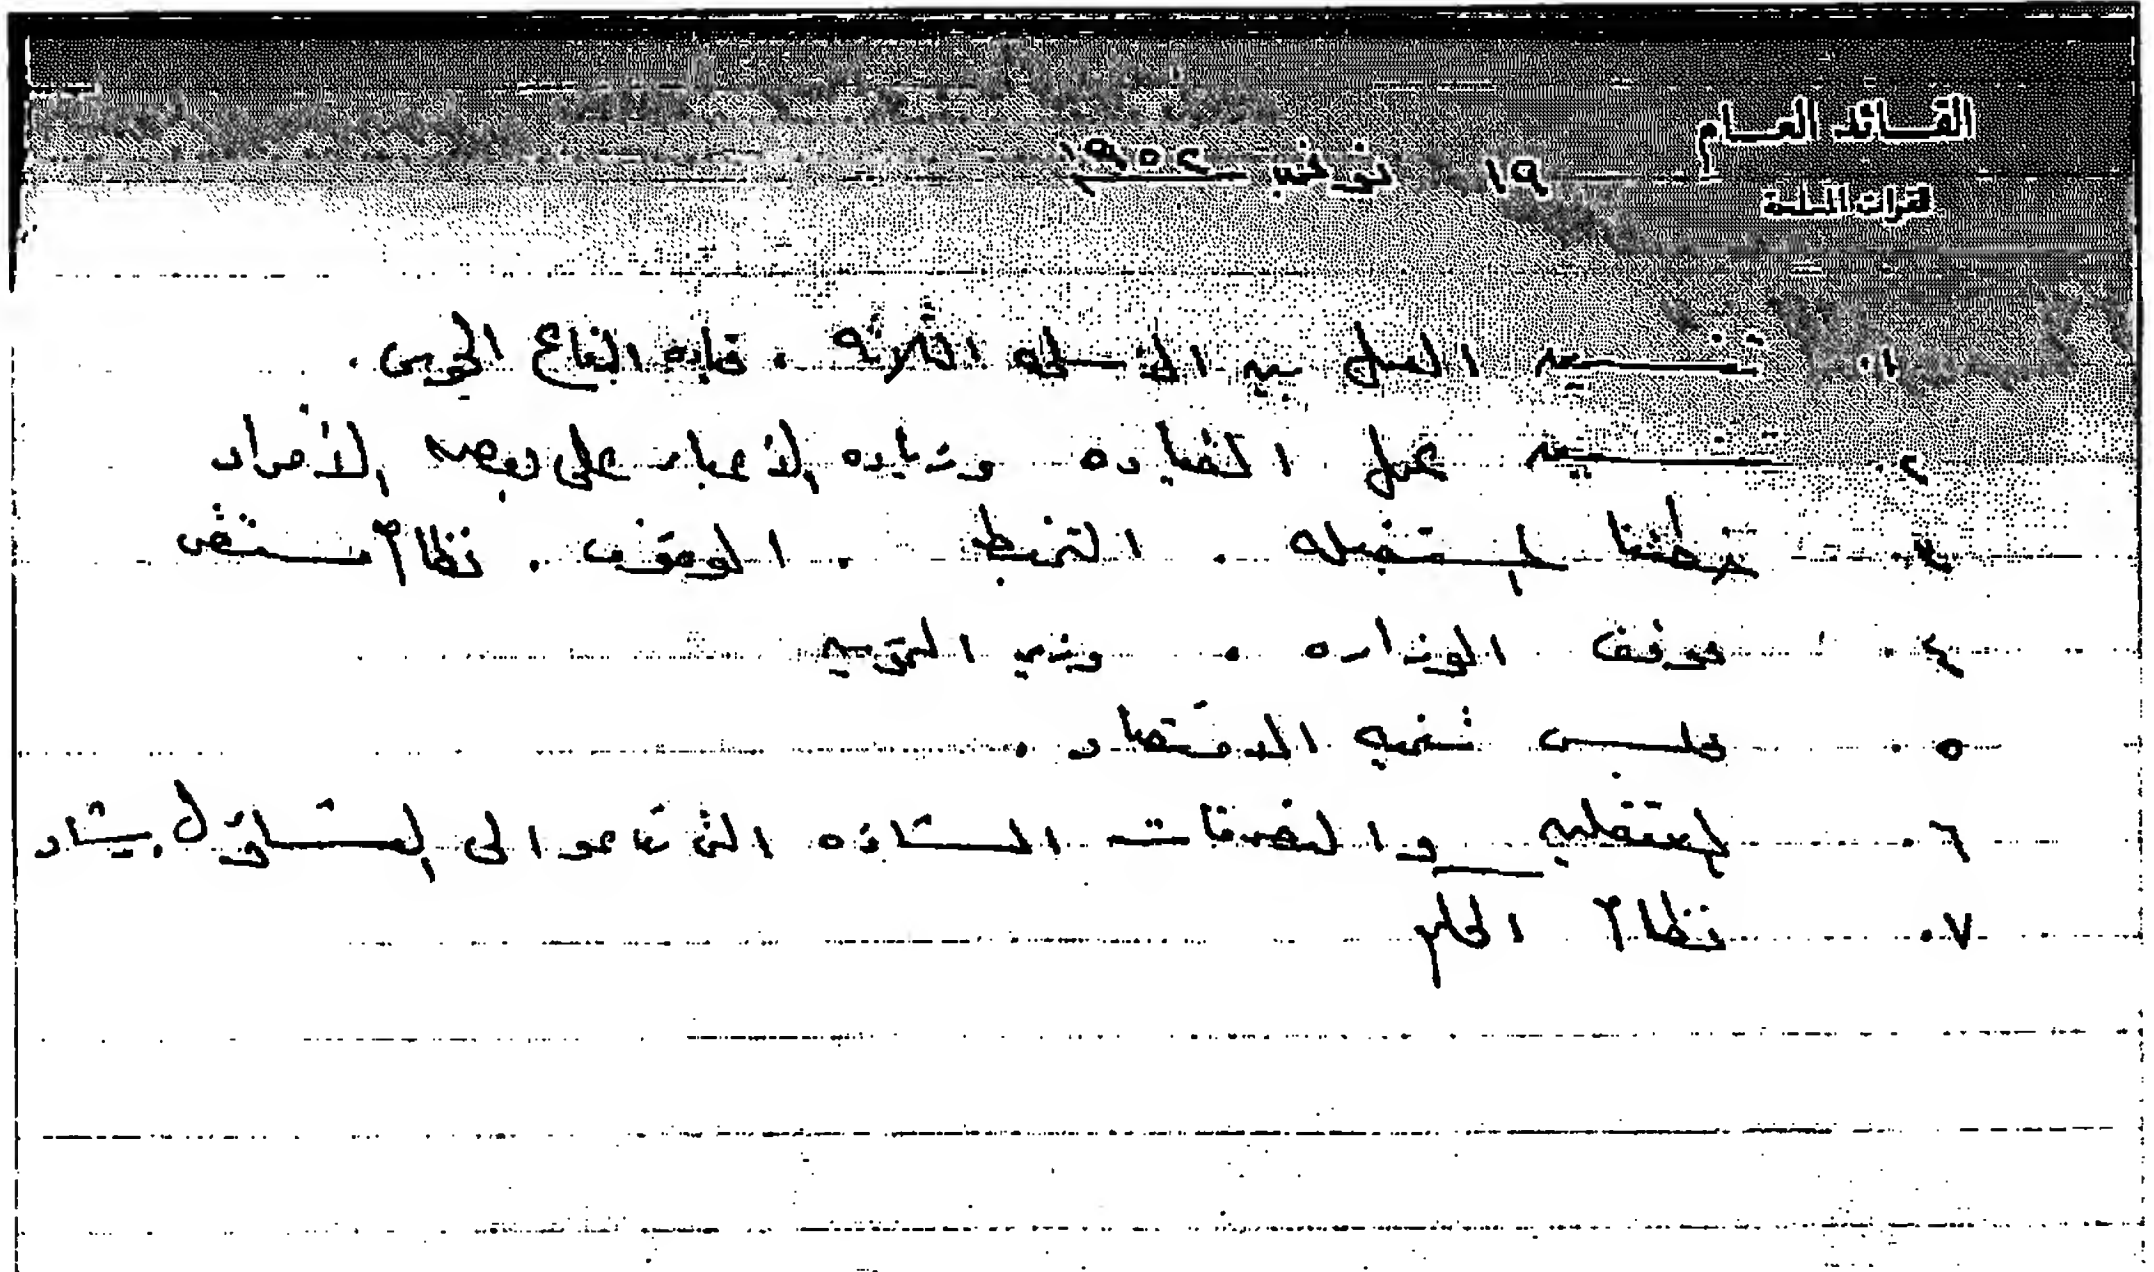 القائد العام
للقوات المسلحة
١٩ نوفمبر ١٩٥٢
١. تنسيق العمل بين الأسلحة الثلاثه . قياده الدفاع الجوى .
٢. تنسيق عمل القياده وزياده الأعباء على بعض الأفراد
٣. خطتنا المستقبله . التخطيط . الموقف . نظام مستقر
٤. موقف الوزاره . وزير التموين
٥. مجلس تنميه الاقتصاد .
٦. المعتقلين والتصرفات الشاذه التى تدعو الى
٧. نظام الحكم